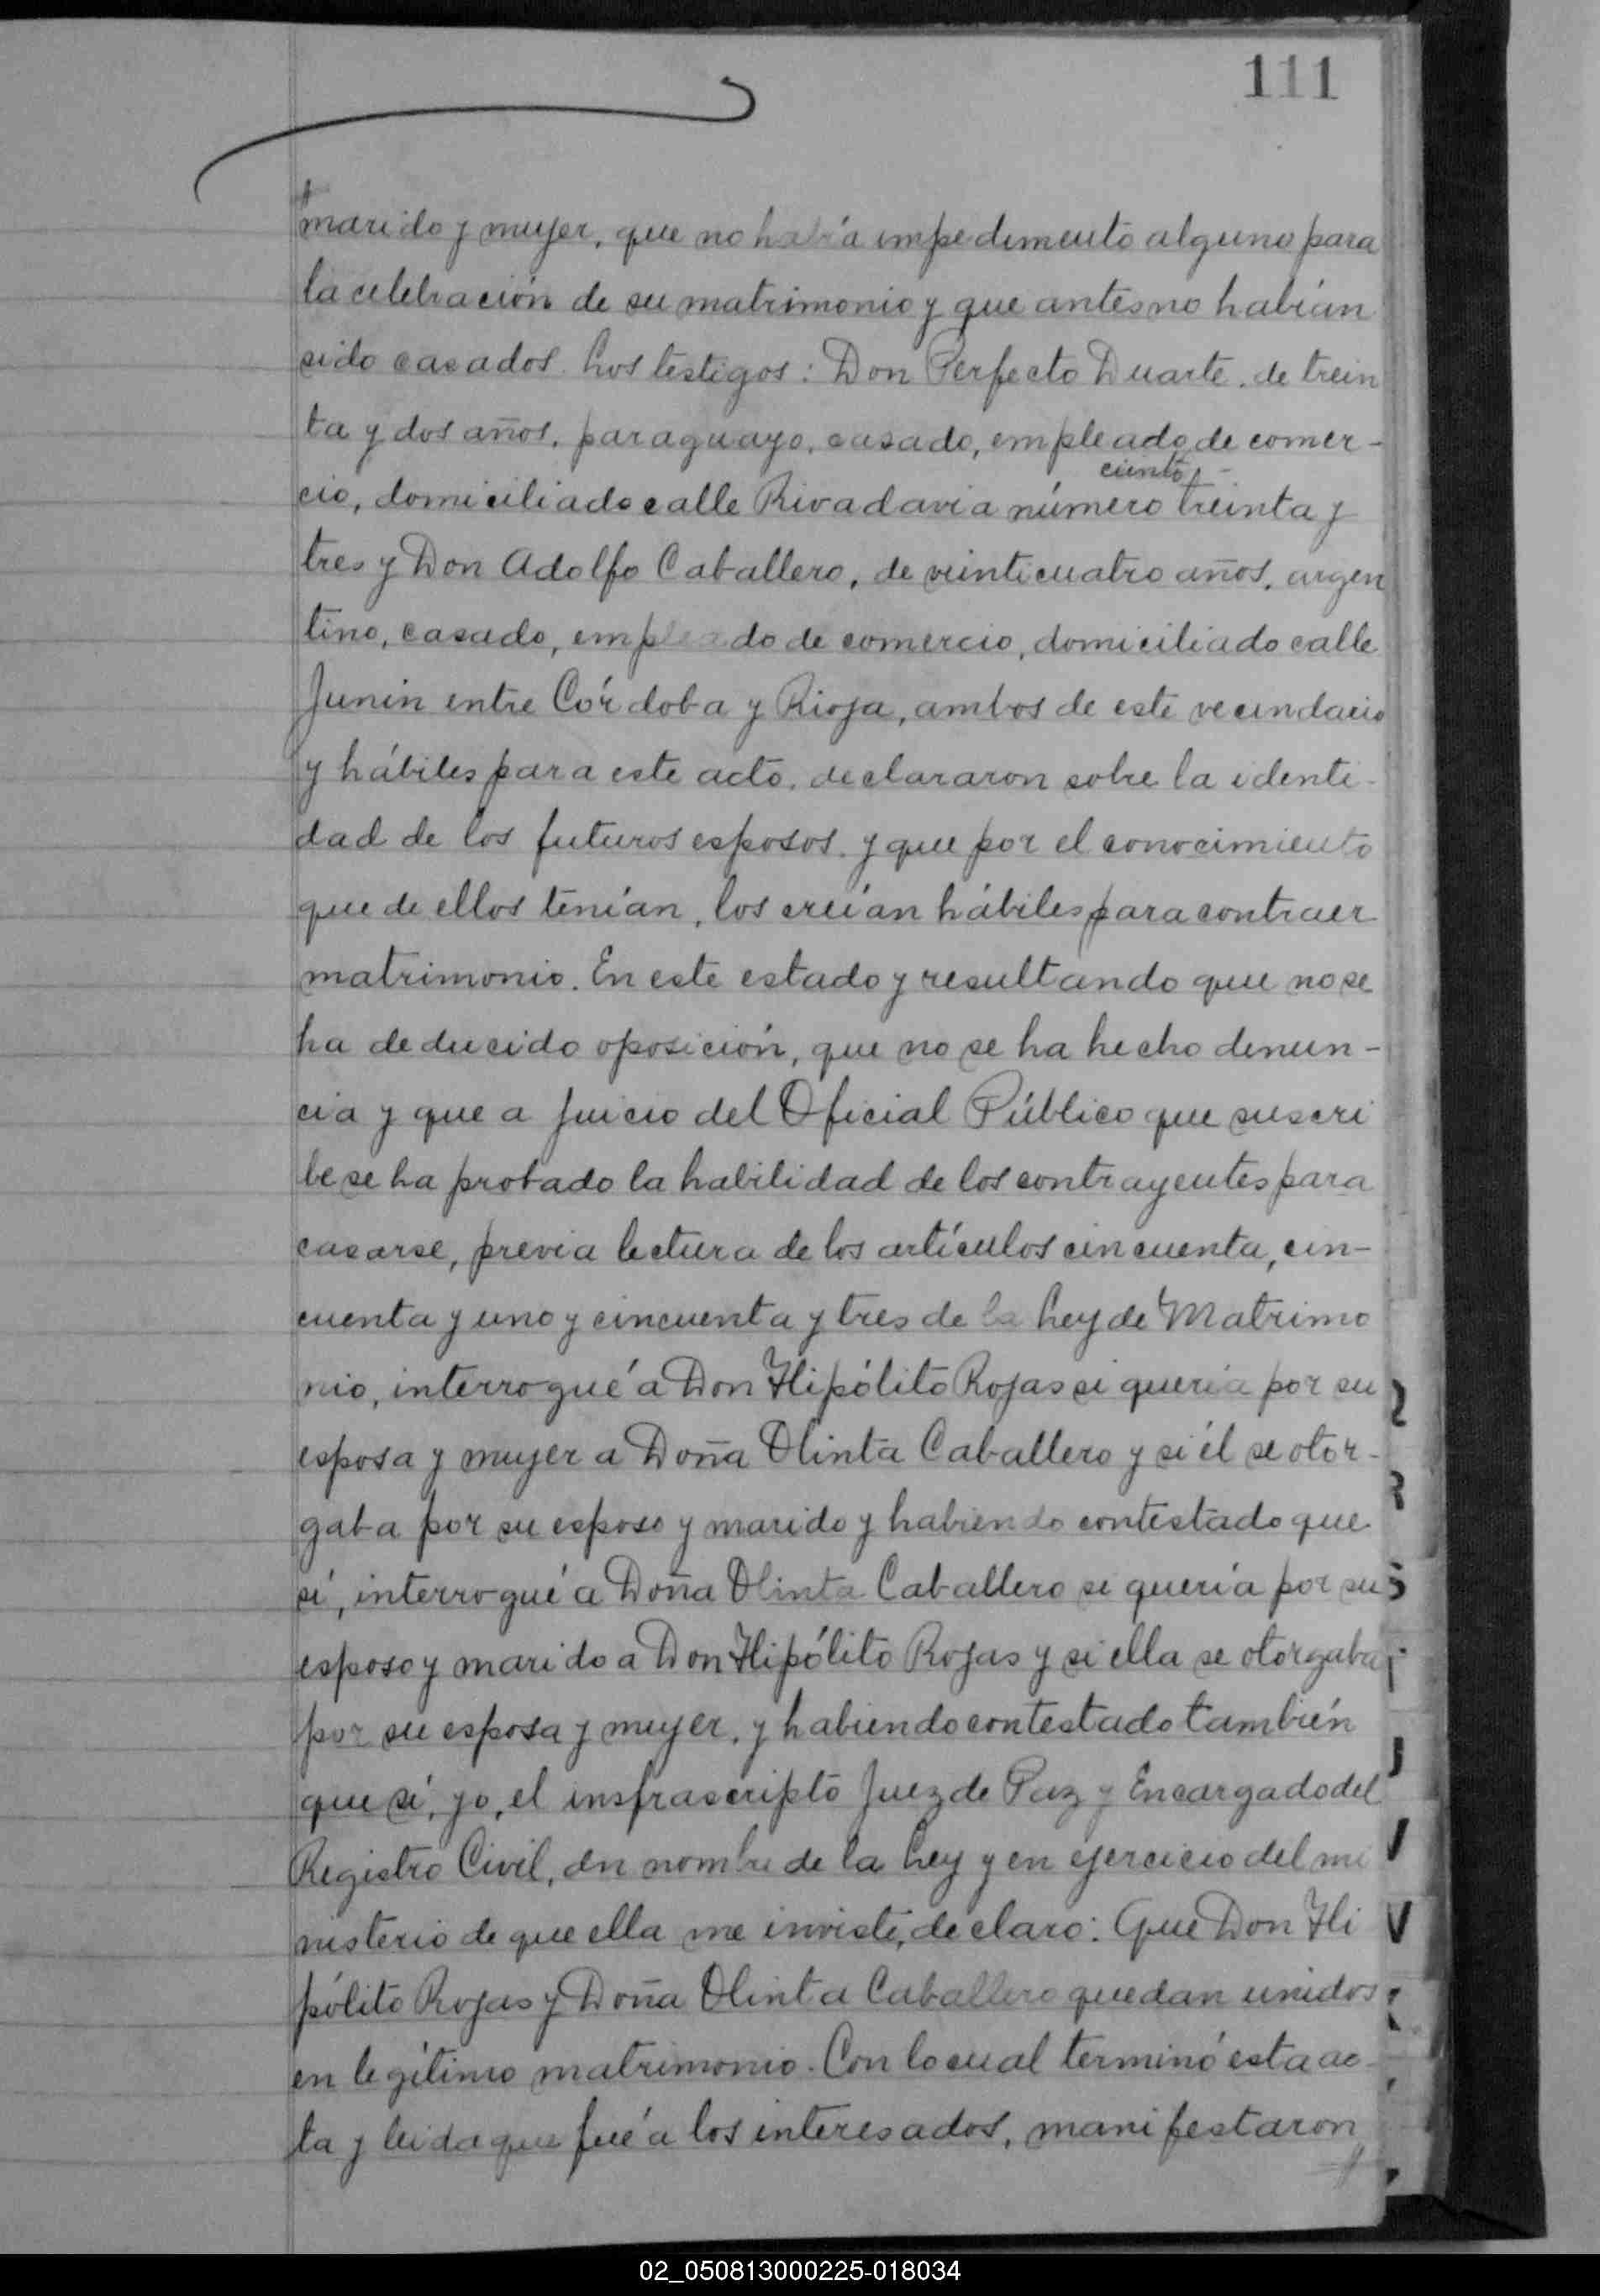 111
marido y mujer, que no había impedimento alguno para
la celebración de su matrimonio y que antes no habían
sido casados. Los testigos: Don Perfecto Duarte, de trein
ta y dos años, paraguayo, casado, empleado de comer-
ciento
cio, domiciliado calle Rivadavia número treinta y
tres y Don Adolfo Caballero, de veinticuatro años, argen
tino, casado, empleado de comercio, domiciliado calle
Junin entre Córdoba y Rioja, ambos de este vecindario
y hábiles para este acto, declararon sobre la identi-
dad de los futuros esposos y que por el conocimiento
que de ellos tenían, los creían hábiles para contraer
matrimonio. En este estado y resultando que no se
ha deducido oposición, que no se ha hecho denun-
cia y que a juicio del Oficial Público que suscri
be se ha probado la habilidad de los contrayentes para
casarse, previa lectura de los artículos cincuenta, cin-
cuenta y uno y cincuenta y tres de la Ley de Matrimo
nio, interrogué a Don Hipólito Rojas si quería por su
esposa y mujer a Doña Olinta Caballero y si él se otor-
gaba por su esposo y marido y habiendo contestado que
sí, interrogué a Doña Olinta Caballero si quería por su
esposo y marido a Don Hipólito Rojas y si ella se otorgaba
por su esposa y mujer, y habiendo contestado también
que sí, yo, el insfrascripto Juez de Paz y Encargado del
Registro Civil, en nombre de la Ley y en ejercicio del mi
nisterio de que ella me inviste, declaro: Que Don Hi
pólito Rojas y Doña Olinta Caballero quedan unidos
en legítimo matrimonio. Con lo cual terminó esta ac-
ta y leida que fué a los interesados, manifestaron
02_050813000225-018034